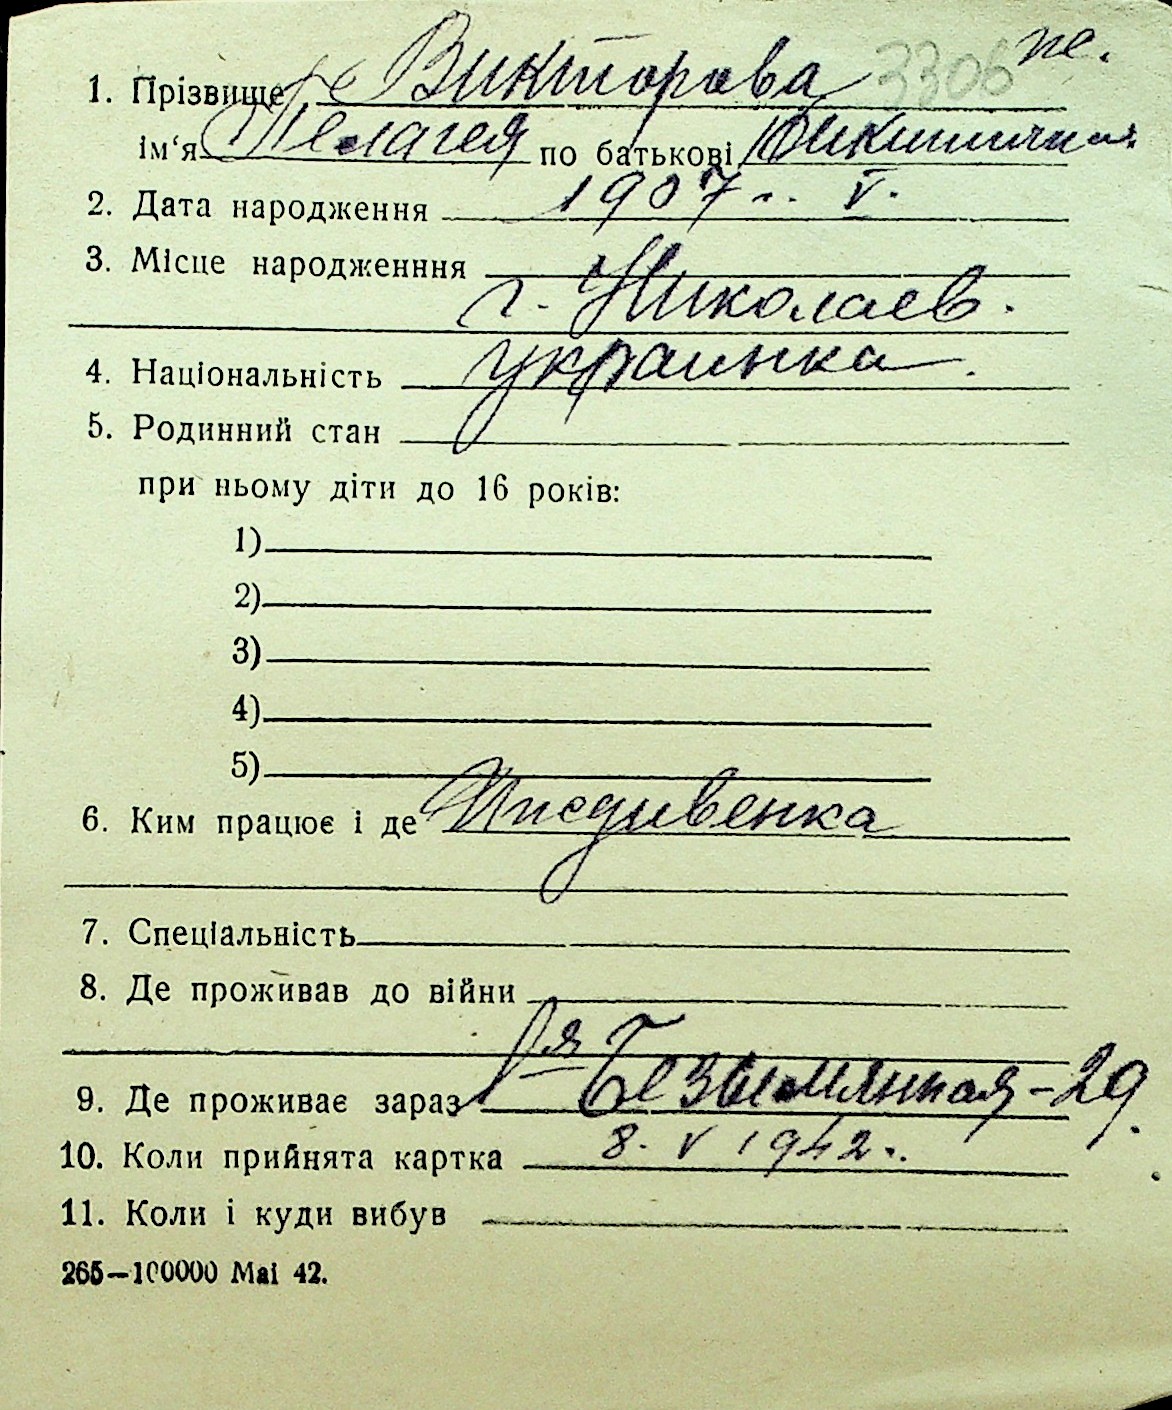 3306 не.
1. Прізвище Викторова
ім‘я Пелагея по батькові Никитична
2. Дата народження 1907 г. V.
3. Місце народженння
г. Николаев.
4. Національність украинка.
5. Родинний стан
при ньому діти до 16 років:
1)
2)
3)
4)
5)
6. Ким працює і де Иждивенка
7. Спеціальність
8. Де проживав до війни
9. Де проживає зараз 1я Безымянная-29.
10. Коли прийнята картка 8. V 1942 г.
11. Коли і куди вибув
265—100000 Mai 42.